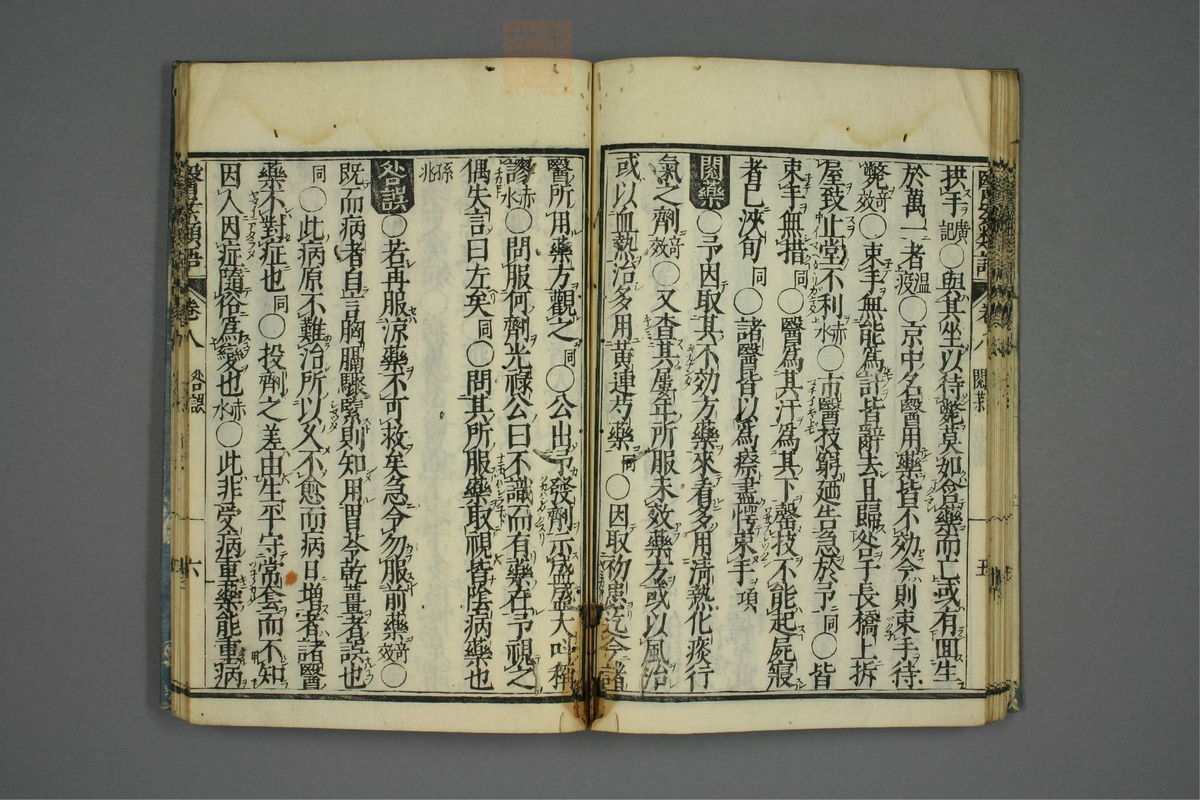 拱手廣記〇與其坐以待斃莫如含藥而亡或有囬生
於萬一者溫疫〇京中名醫用藥皆不効今則束手待
斃奇效〇束手無能為計皆辭去且歸咎于長橋上拆
屋致止堂不利赤水〇市醫技窮廼告急於予同〇皆
束手無措同〇醫爲其汗爲其下罄技不能起屍寢
者已浹旬同〇諸醫皆以爲瘵盡愕束手項
閱藥〇予因取其不効方藥來看多用清熱化痰行
氣之劑奇效〇又查其屢年所服未效藥方或以風治
或以血熱治多用黃連芍藥同〇因取初患迄今諸
醫所用藥方觀之同〇公出予發劑示盛盛大叫稱
謬赤水〇問服何劑光祿公曰不識而有藥在予視之
偶失言曰左矣同〇問其所服藥取視皆陰病藥也
孫兆
咎誤〇若再服涼藥不可救矣急令勿服前藥奇效〇
既而病者自言胸膈驟緊則知用胃苓乾薑者誤也
同〇此病原不難治所以久不愈而病日增者諸醫
藥不對症也同〇投劑之差由生平守常套而不知
因人因症隨俗爲變也赤水〇此非受病重藥能重病
醫案類語 卷八 咎誤 六
卷八 閱藥 五